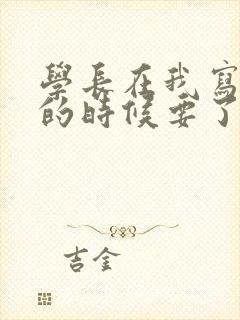 學長在我寫
的時候要了
吉金